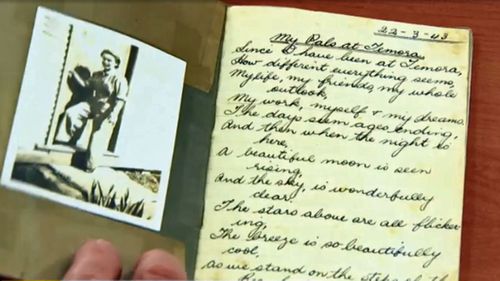 22-3-43
My Pals at Temora.
Since I have been at Temora,
How different everything seems,
My life, my friends, my whole
outlook,
My work, myself & my dreams.
The days seem ages ending,
And then when the night is
here,
A beautiful moon is seen
rising,
And the sky, is wonderfully
clear.
The stars above are all flicker
ing,
The breeze is so beautifully
cool,
As we stand on the steps of the